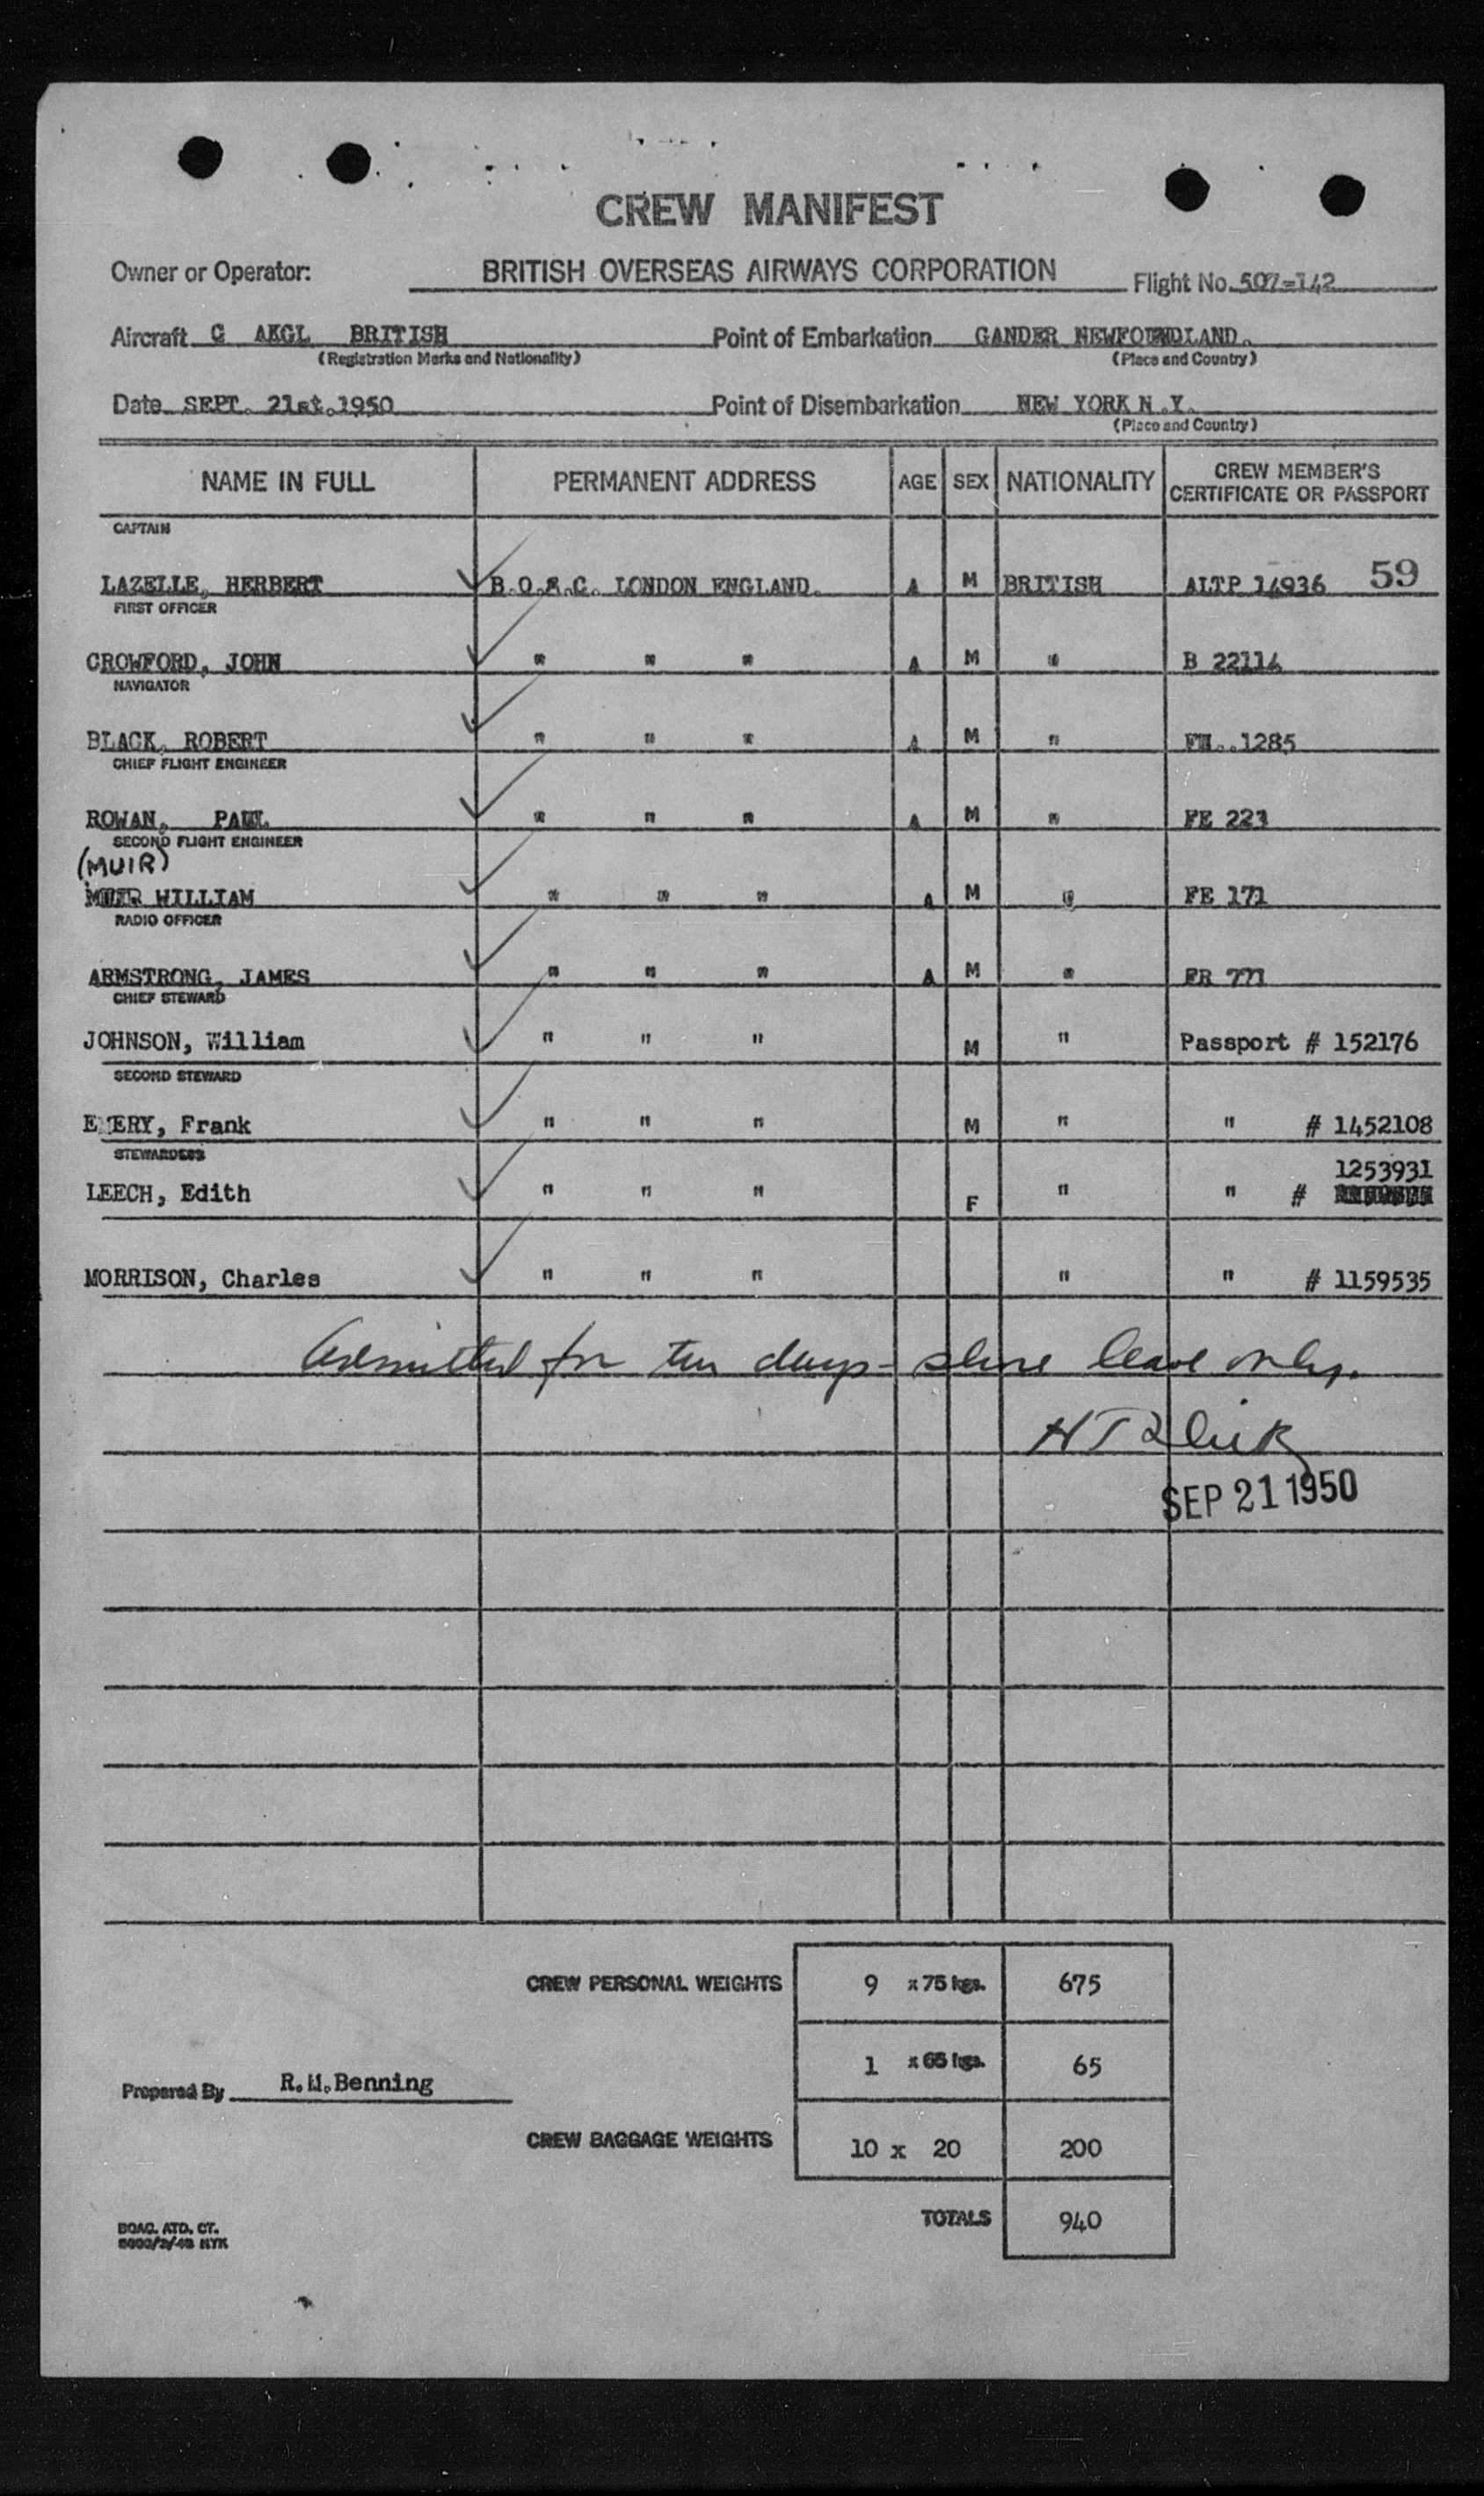 CREW MANIFEST
Owner or Operator: BRITISH OVERSEAS AIRWAYS CORPORATION Flight No. 507-142
Aircraft G AKGL BRITISH Point of Embarkation GANDER NEWFOUNDLAND.
(Registration Marks and Nationality) (Place and Country)
Date SEPT. 21st.1950 Point of Disembarkation NEW YORK N.Y.
(Place and Country)
NAME IN FULL PERMANENT ADDRESS AGE SEX NATIONALITY CREW MEMBER'S CERTIFICATE OR PASSPORT
CAPTAIN
LAZELLE, HERBERT B.O.A.C. LONDON ENGLAND. A M BRITISH ALTP 14936 59
FIRST OFFICER
CROWFORD, JOHN " " " A M " B 22114
NAVIGATOR
BLACK, ROBERT " " " A M " 1285
CHIEF FLIGHT ENGINEER
ROWAN, PAUL " " " A M " FE 223
SECOND FLIGHT ENGINEER
(MUIR)
MUIR WILLIAM " " " A M " FE 171
RADIO OFFICER
ARMSTRONG, JAMES " " " A M " 771
CHIEF STEWARD
JOHNSON, William " " " M " Passport # 152176
SECOND STEWARD
Frank " " " M " " # 1452108
STEWARDESS
1253931
LEECH, Edith " " " F " " #
MORRISON, Charles " " " " " # 1159535
Admitted for ten days - shore leave only.
SEP 21 1950
CREW PERSONAL WEIGHTS 9 x 75 kgs. 675
1 x 65 kgs. 65
Prepared By R.M.Benning
CREW BAGGAGE WEIGHTS 10 x 20 200
TOTALS 940
BOAC. ATD. CT.
NYK